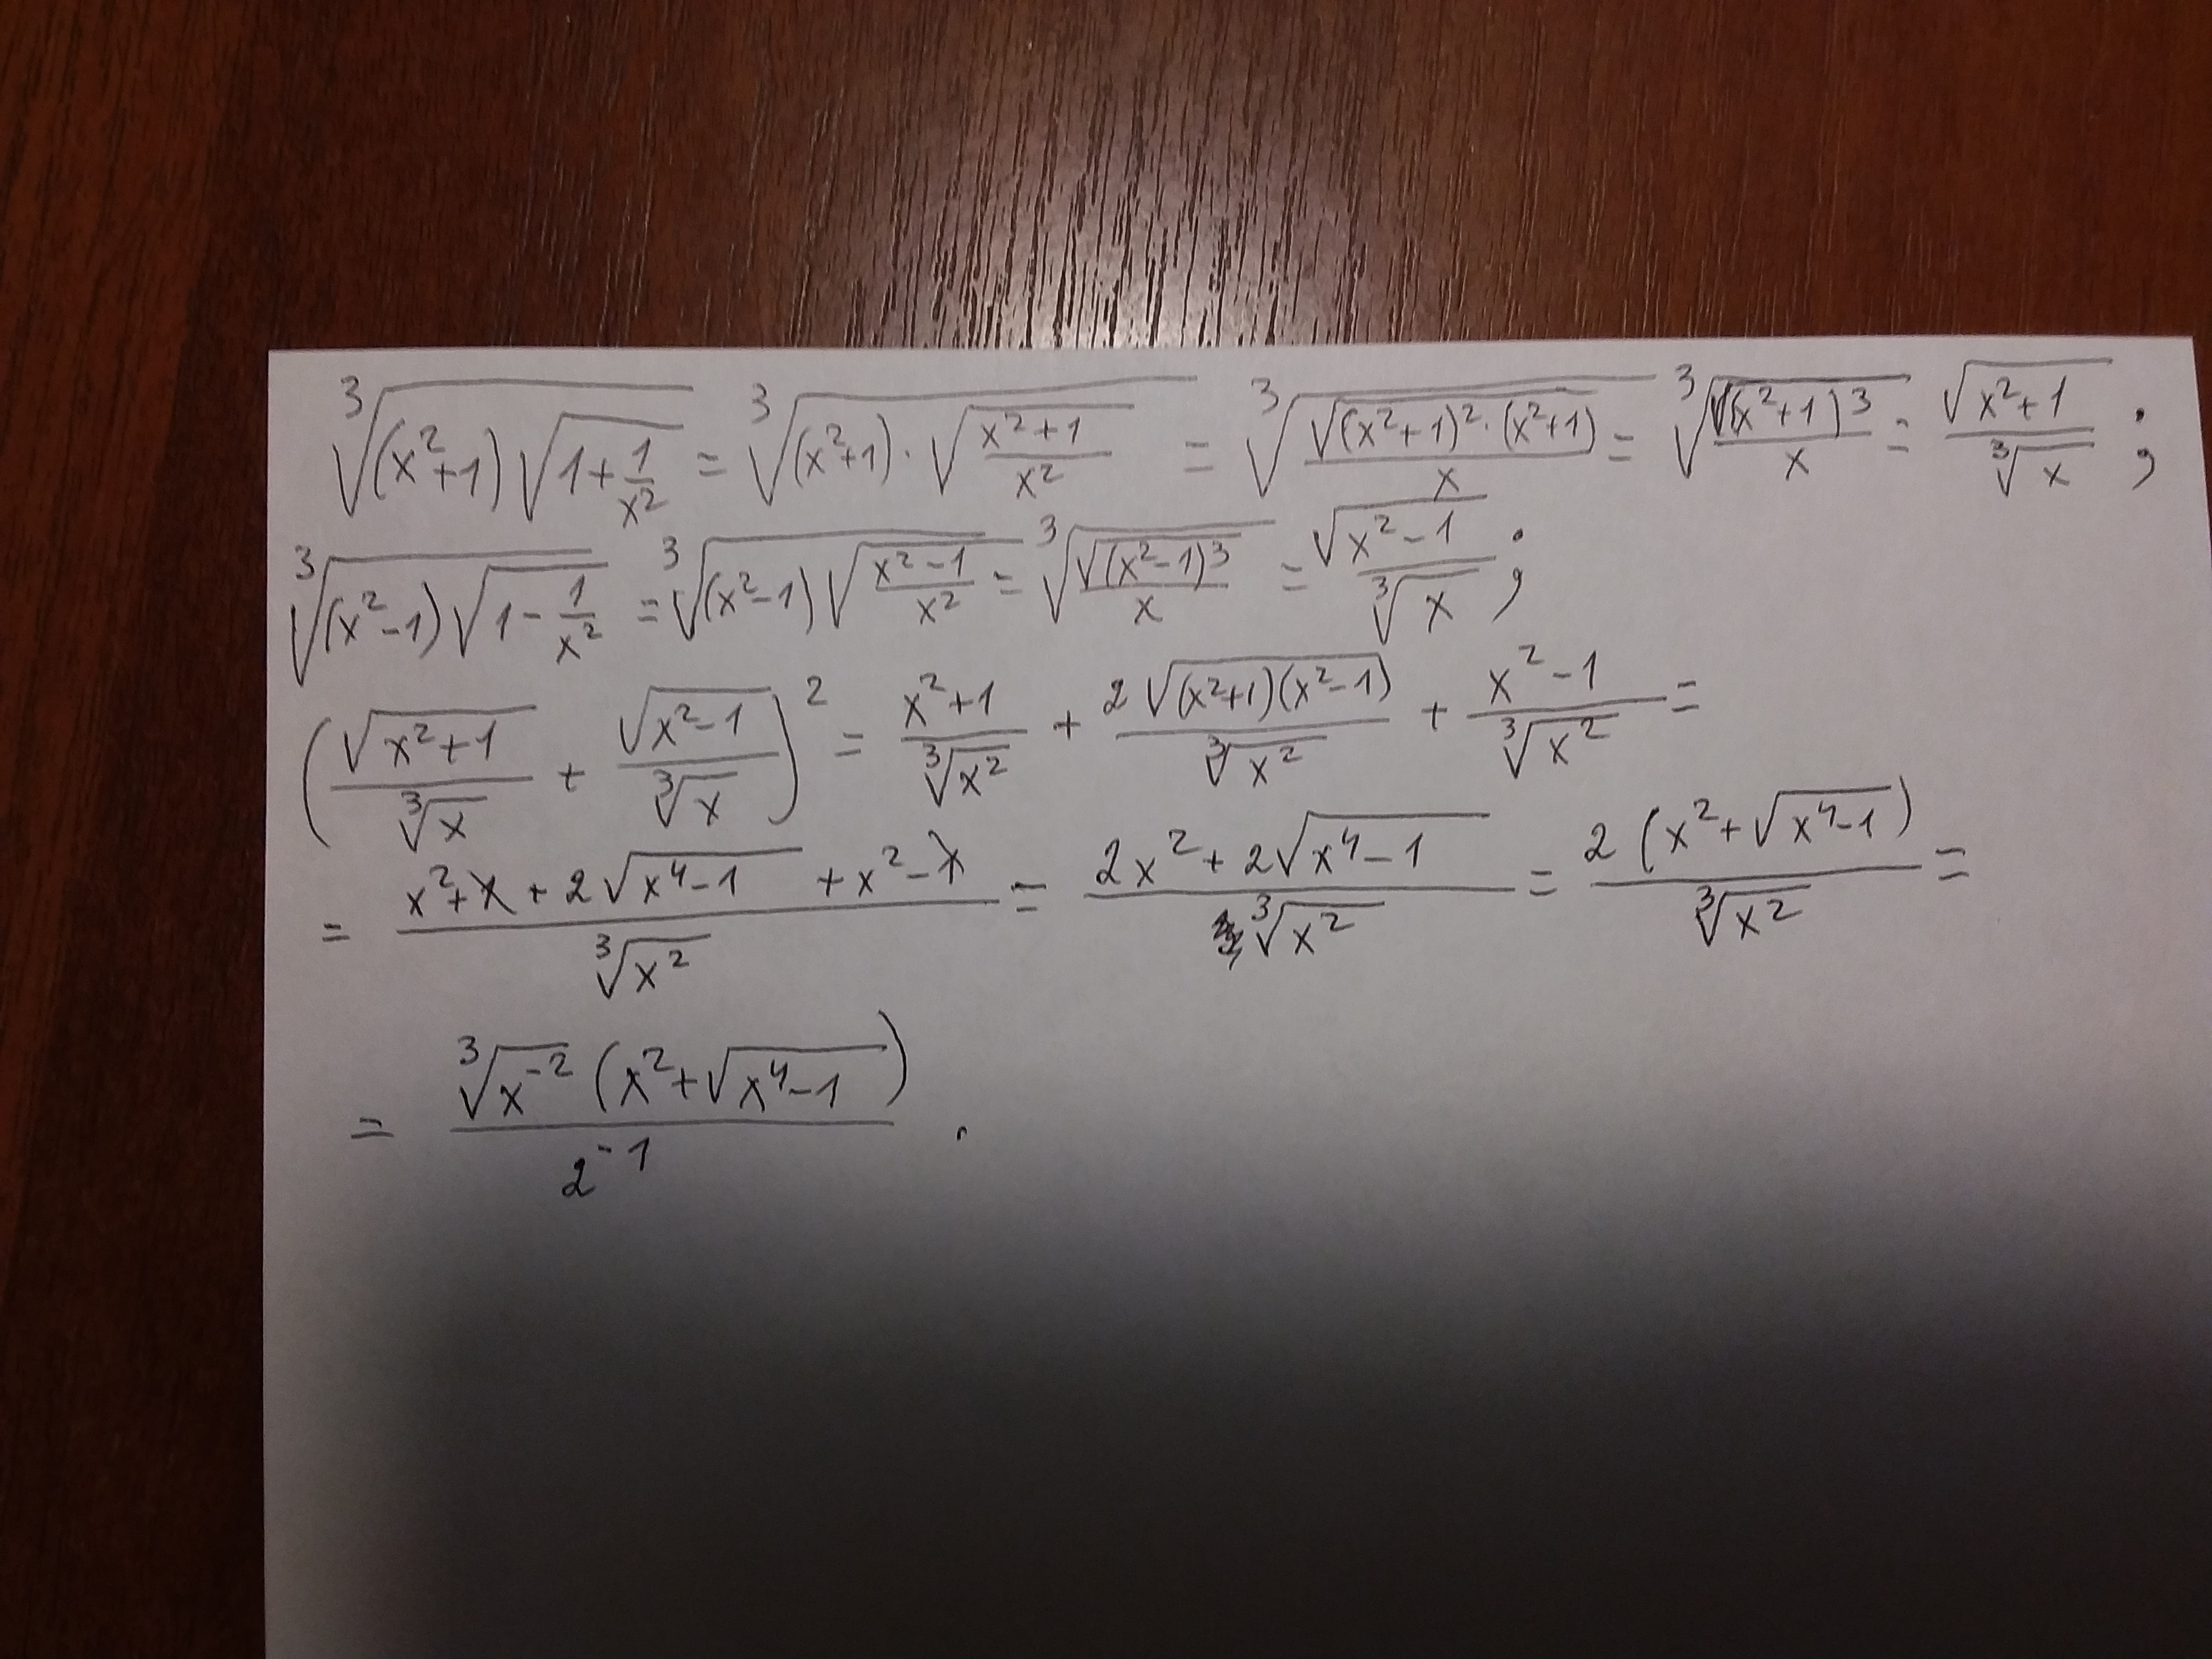 ∛((x²+1)√(1+1/x²)) = ∛((x²+1)·√((x²+1)/x²)) = ∛(√((x²+1)²·(x²+1))/x) = ∛(√((x²+1)³)/x) = √(x²+1)/∛x ;
∛((x²-1)√(1-1/x²)) = ∛((x²-1)√((x²-1)/x²)) = ∛(√((x²-1)³)/x) = √(x²-1)/∛x ;
(√(x²+1)/∛x + √(x²-1)/∛x)² = (x²+1)/∛(x²) + 2√((x²+1)(x²-1))/∛(x²) + (x²-1)/∛(x²) =
= (x²+1+2√(x⁴-1)+x²-1)/∛(x²) = (2x²+2√(x⁴-1))/∛(x²) = 2(x²+√(x⁴-1))/∛(x²) =
= ∛(x⁻²)(x²+√(x⁴-1))/2⁻¹ .